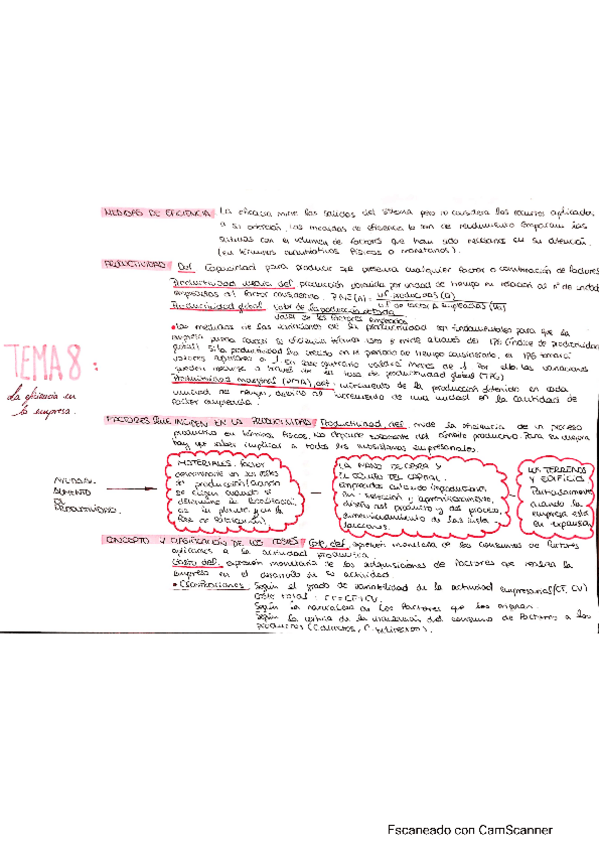 MEDIDAS DE EFICIENCIA La eficacia mide las salidas del sistema pero no considera los recursos aplicados
a su obtención. Las medidas de eficiencia lo son de rendimiento comparan las
salidas con el volumen de factores que han sido necesarios en su obtención
(en términos cuantitativos físicos o monetarios).
PRODUCTIVIDAD Def. Capacidad para producir que presenta cualquier factor o combinación de factores
Productividad media def. producción obtenida por unidad de tiempo en relación al nº de unidades
empleadas del factor considerado. PME(A) = uf producidas (Q) / uf de factor A empleadas (VA)
Productividad global valor de la producción obtenida / valor de los factores empleados
• Las medidas de las variaciones de la productividad son fundamentales para que la
empresa pueda conocer su eficiencia
global) si la productividad ha crecido en el periodo de tiempo considerado, el IPG tomará
valores superiores a 1. en caso contrario valdrá menos de 1. Por ello las variaciones
pueden medirse a través de la tasa de productividad global (TPG)
Productividad marginal (PMA) def. incremento de la producción obtenida en cada
unidad de tiempo, incremento de una unidad en la cantidad de
factor empleada.
TEMA 8:
La eficiencia en
la empresa.
FACTORES QUE INCIDEN EN LA PRODUCTIVIDAD Productividad def. mide la eficiencia de un proceso
productivo en términos físicos. No depende solamente del ámbito productivo. Para su mejora
hay que saber implicar a todos los subsistemas empresariales.
AUMENTO
DE
MATERIALES. factor
determinante en
producción (cuando
se eligen cuando se
determina la localización
de la planta y en la
fase de fabricación)
LA MANO DE OBRA Y
EL EQUIPO DEL CAPITAL.
selección y aprovisionamiento,
diseño del producto y del proceso,
dimensionamiento de las insta-
laciones.
LOS TERRENOS
Y EDIFICIOS
cuando la
empresa está
en expansión
CONCEPTO Y CLASIFICACIÓN DE LOS COSTES Coste def. expresión monetaria de los consumos de factores
aplicados a la actividad productiva.
Gasto def. expresión monetaria de las adquisiciones de factores que realiza la
empresa en el desarrollo de su actividad
• Clasificaciones Según el grado de variabilidad de la actividad empresarial (CF, CV)
Coste total: CT=CF+CV.
Según la naturaleza de los factores que los originan.
Según la certeza de la vinculación del consumo de factores a los
productos (C.directos, C.indirectos).
Escaneado con CamScanner